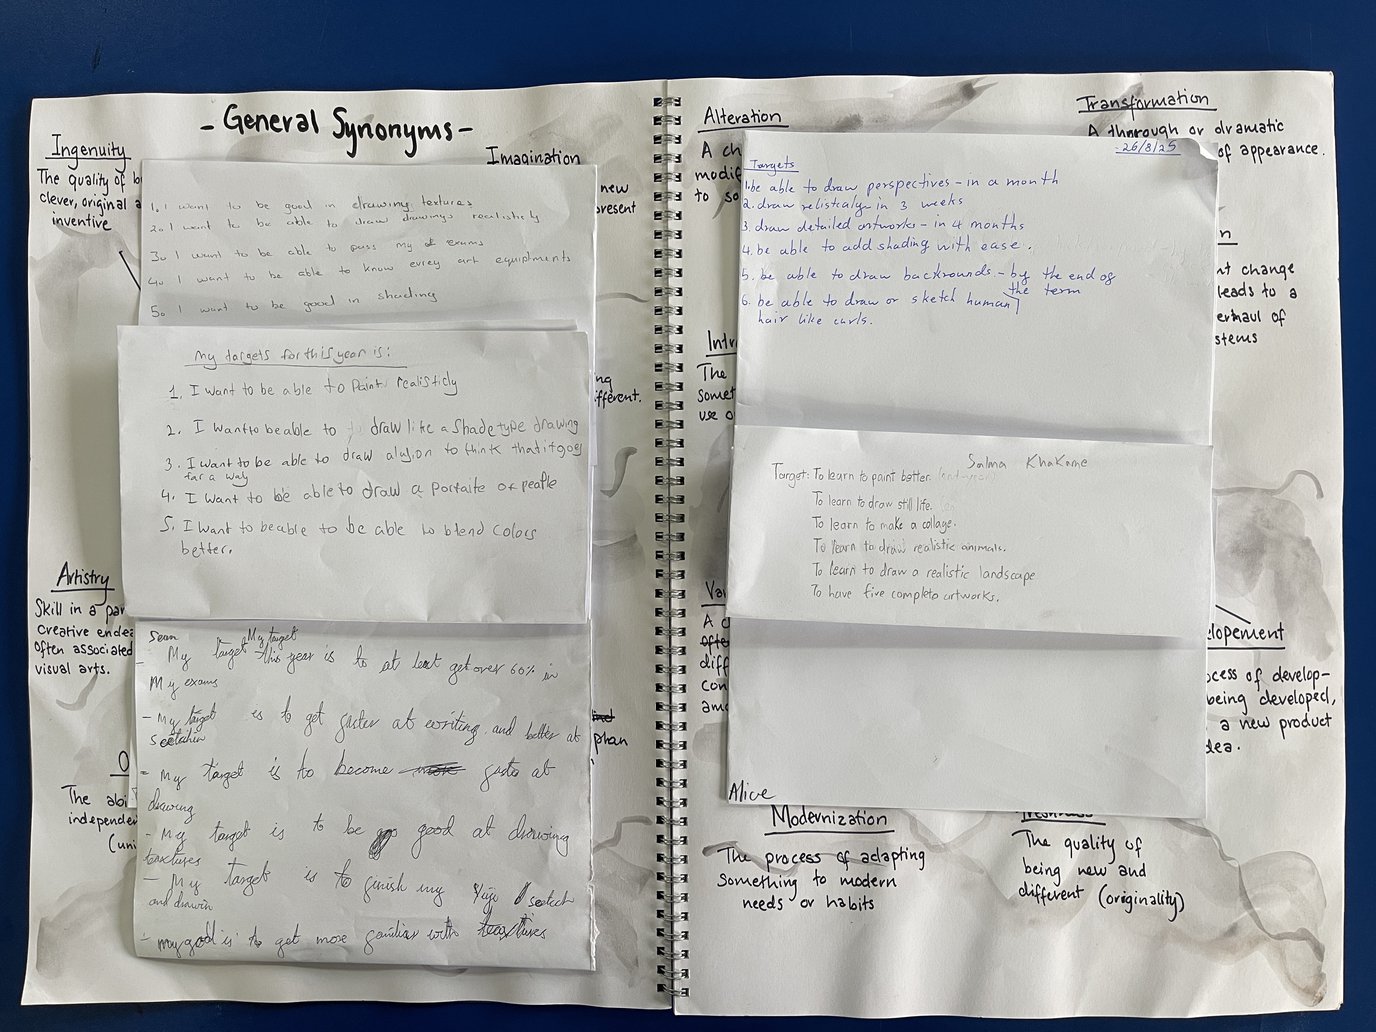 - General Synonyms -
Ingenuity
The quality of b
clever, original a
inventive
Imagination
new
present
1. I want to be good in drawing textures
2. I want to be able to draw drawings realisticly
3. I want to be able to pass my exams
4. I want to be able to know evrey art equiptments
5. I want to be good in shading
ng
fferent.
My targets for this year is:
1. I want to be able to Paint realisticly
2. I want to be able to draw like a shade type drawing
3. I want to be able to draw alusion to think that it goes
far a way
4. I want to be able to draw a Portaite of people
5. I want to be able to be able to blend colors
better.
Artistry
Skill in a par
creative endea
often associated
visual arts.
O
The abi
independe
(uni
sean
My target
- My target this year is to at least get over 60% in
My exams
- My target is to get faster at writing and better at
- My target is to become faster at
drawing
- My target is to be good at drawing
- My target is to finish my
and drawin
- my goal is to get more familiar with
phan
Alteration
A ch
modif
to so
Transformation
A thorough or dramatic
of appearance.
26/8/25
Targets
1. be able to draw perspectives - in a month
2. draw relisticaly in 3 weeks
3. draw detailed artworks - in 4 months
4. be able to add shading with ease.
5. be able to draw backrounds - by the end of
the term
6. be able to draw or sketch human
hair like curls.
n
nt change
leads to a
erhaul of
stems
Intr
The
somet
use o
Salma Khakame
Target: To learn to paint better.
To learn to draw still life.
To learn to make a collage.
To learn to draw realistic animals.
To learn to draw a realistic landscape
To have five complete artworks.
Va
A c
diff
con
amo
elopement
ocess of develop-
being developed,
a new product
dea.
Alive
Modernization
The process of adapting
something to modern
needs or habits
The quality of
being new and
different (originality)